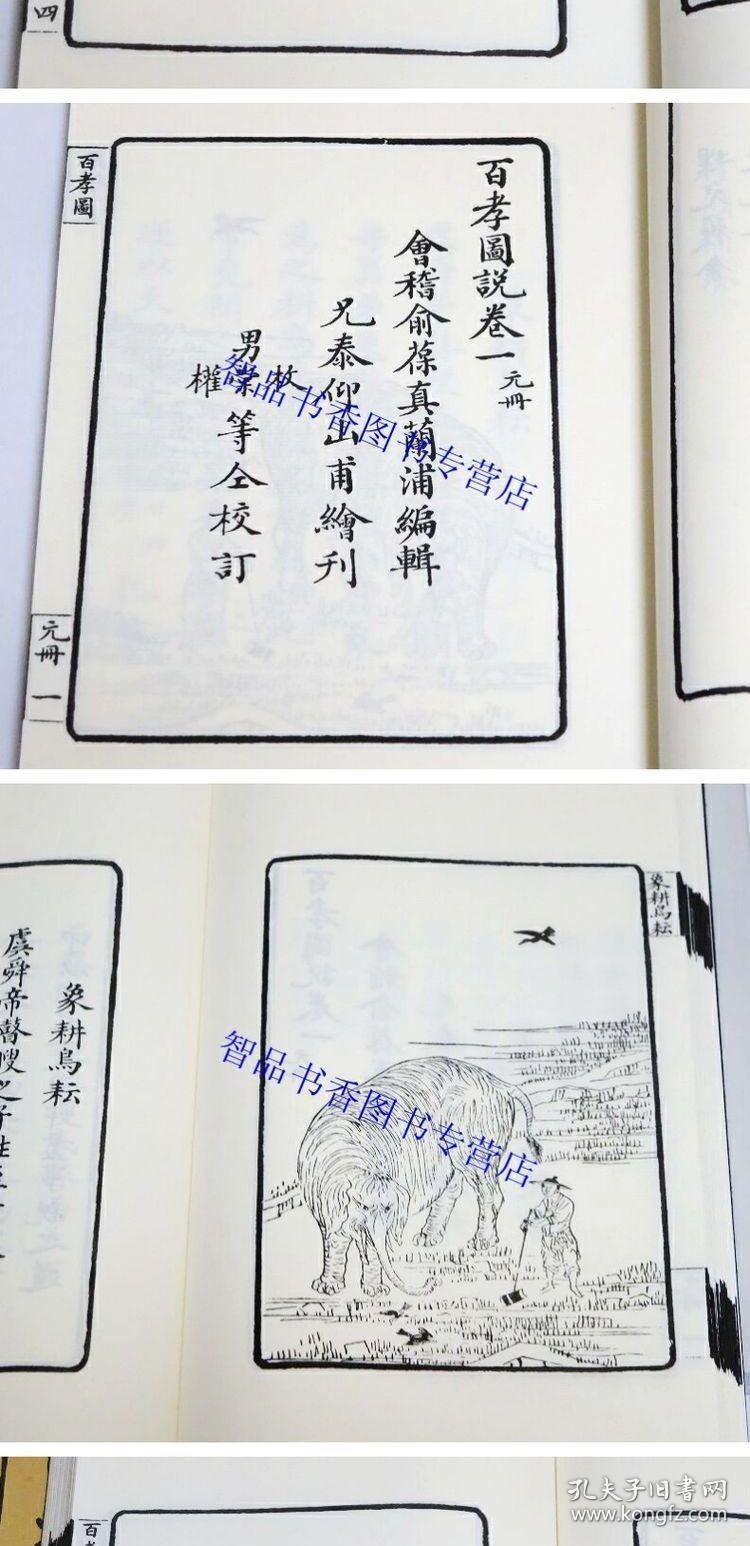 四
百孝圖說卷一 元冊
會稽俞葆真蘭浦編輯
兄泰仰山甫繪刊
男
枚
權
等仝校訂
百孝圖
元冊 一
智品书香图书专营店
象耕鳥耘
象耕鳥耘
虞舜帝瞽瞍之子性至
智品书香图书专营店
百
孔夫子旧书网
www.kongfz.com